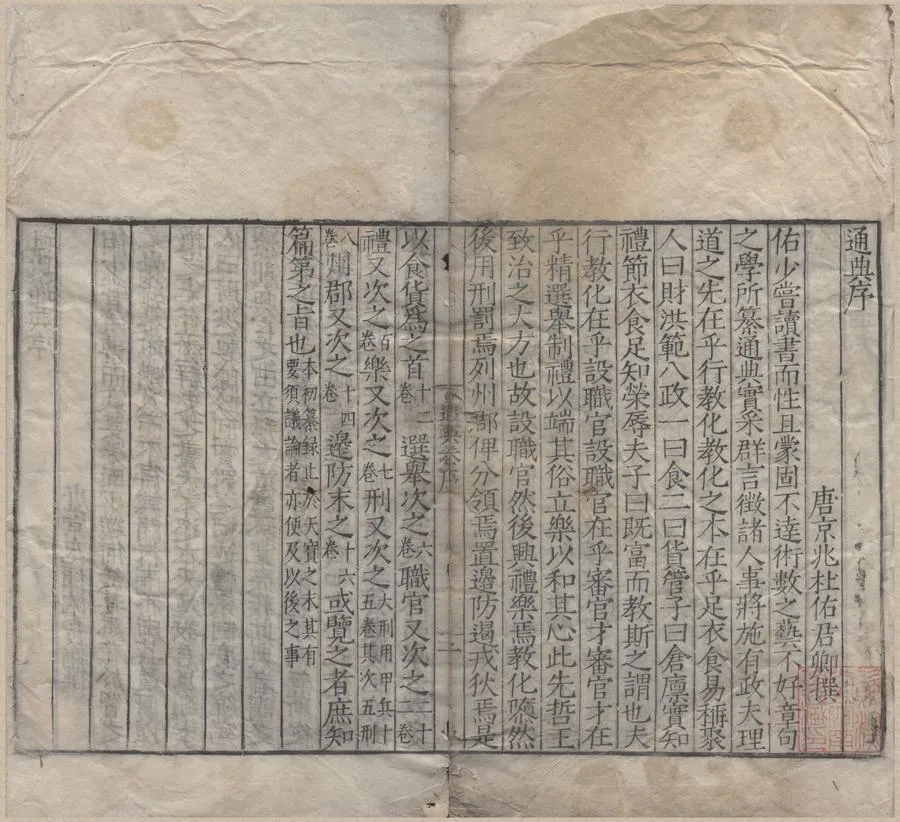 通典序
唐京兆杜佑君卿撰
佑少嘗讀書而性且蒙固不達術數之藝不好章句
之學所纂通典實采群言徵諸人事將施有政夫理
道之先在乎行教化教化之本在乎足衣食易稱聚
人曰財洪範八政一曰食二曰貨管子曰倉廪實知
禮節衣食足知榮辱夫子曰既富而教斯之謂也夫
行教化在乎設職官設職官在乎審官才審官才在
乎精選舉制禮以端其俗立樂以和其心此先哲王
致治之大方也故設職官然後興禮樂焉教化隳然
後用刑罰焉列州郡俾分領焉置邊防遏戎狄焉是
通典卷序
以食貨爲之首十二卷選舉次之六卷職官又次之二十二卷
禮又次之百卷樂又次之七卷刑又次之大刑用甲兵十五卷其次五刑
八卷州郡又次之十四卷邊防末之十六卷或覽之者庶知
篇第之旨也本初纂録止於天寶之末其有要須議論者亦便及以後之事